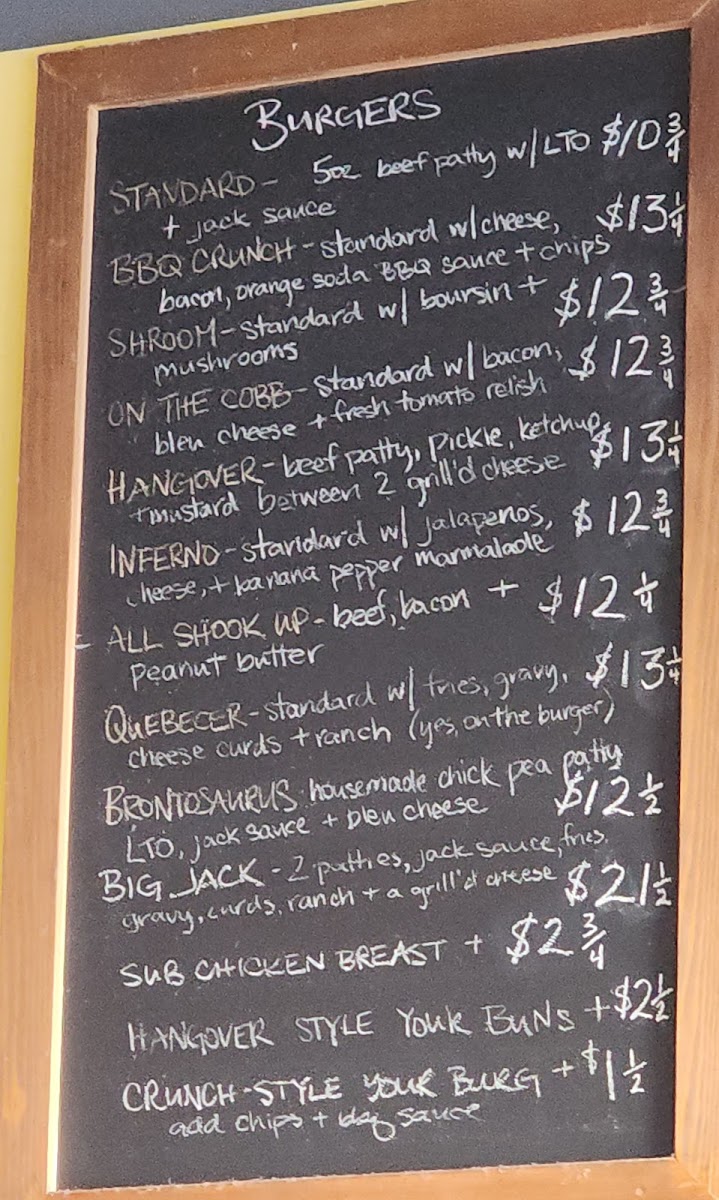 BURGERS
STANDARD - 5oz beef patty w/ LTO $10 3/4
+ jack sauce
BBQ CRUNCH - standard w/ cheese, $13 1/4
bacon, orange soda BBQ sauce + chips
SHROOM - standard w/ boursin + $12 3/4
mushrooms
ON THE COBB - standard w/ bacon, $12 3/4
bleu cheese + fresh tomato relish
HANGOVER - beef patty, pickle, ketchup, $13 1/4
+ mustard between 2 grill'd cheese
INFERNO - standard w/ jalapenos, $12 3/4
cheese, + banana pepper marmalade
ALL SHOOK UP - beef, bacon + $12 1/4
peanut butter
QUEBECER - standard w/ fries, gravy, $13 1/4
cheese curds + ranch (yes, on the burger)
BRONTOSAURUS - housemade chick pea patty
LTO, jack sauce + bleu cheese $12 1/2
BIG JACK - 2 patties, jack sauce, fries,
gravy, curds, ranch + a grill'd cheese $21 1/2
SUB CHICKEN BREAST + $2 3/4
HANGOVER STYLE YOUR BUNS + $2 1/2
CRUNCH-STYLE YOUR BURG + $1 1/2
add chips + bbq sauce